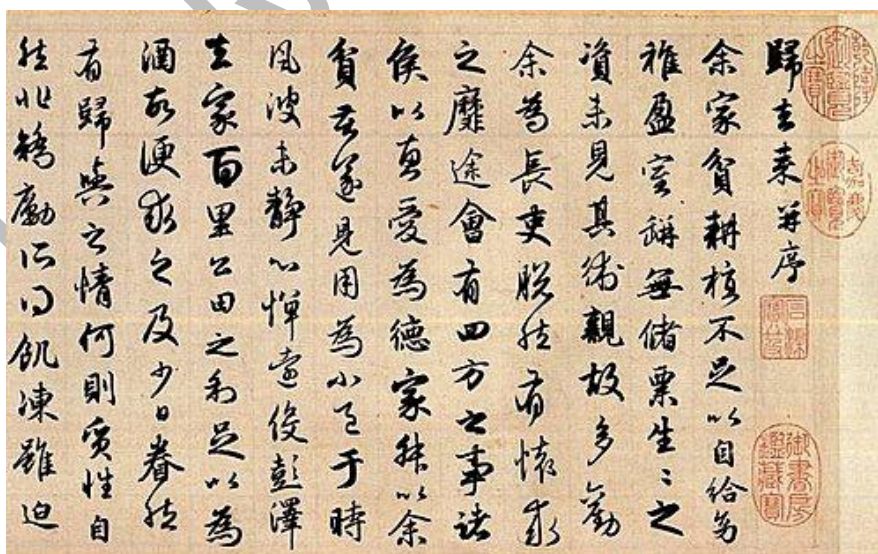 乾隆御覽之寶
嘉慶御覽之寶
御書房鑑藏寶
歸去来并序
余家貧耕植不足以自給幼
稚盈室缾無儲粟生〻之
資未見其術親故多勸
余為長吏脱然有懐求
之靡途會有四方之事諸
侯以惠愛為德家叔以余
貧苦遂見用為小邑于時
風波未静心憚遠役彭澤
去家百里公田之利足以為
酒故便求之及少日眷然
有歸與之情何則質性自
然非矯勵所得飢凍雖迫